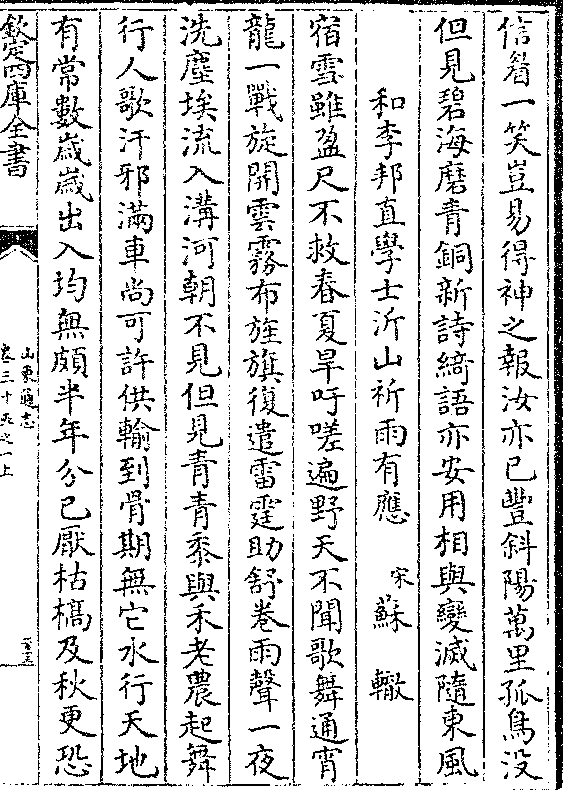 信眉一笑豈易得神之報汝亦已豐斜陽萬里孤鳥没
但見碧海磨青銅新詩綺語亦安用相與變滅隨東風
和李邦直學士沂山祈雨有應 宋 蘇轍
宿雪雖盈尺不救春夏旱吁嗟遍野天不聞歌舞通宵
龍一戰旋開雲霧布旌旗復遣雷霆助舒卷雨聲一夜
洗塵埃流入溝河朝不見但見青青黍與禾老農起舞
行人歌汙邪滿車尚可許供輸到骨期無它水行天地
有常數歲歲出入均無頗半年分已厭枯槁及秋更恐
欽定四庫全書
山東通志
卷三十五之一上